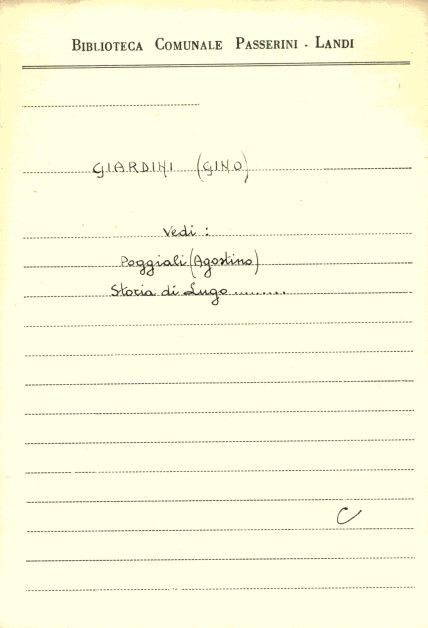 BIBLIOTECA COMUNALE PASSERINI - LANDI
GIARDINI (GINO)
Vedi :
Poggiali (Agostino)
Storia di Lugo .........
C